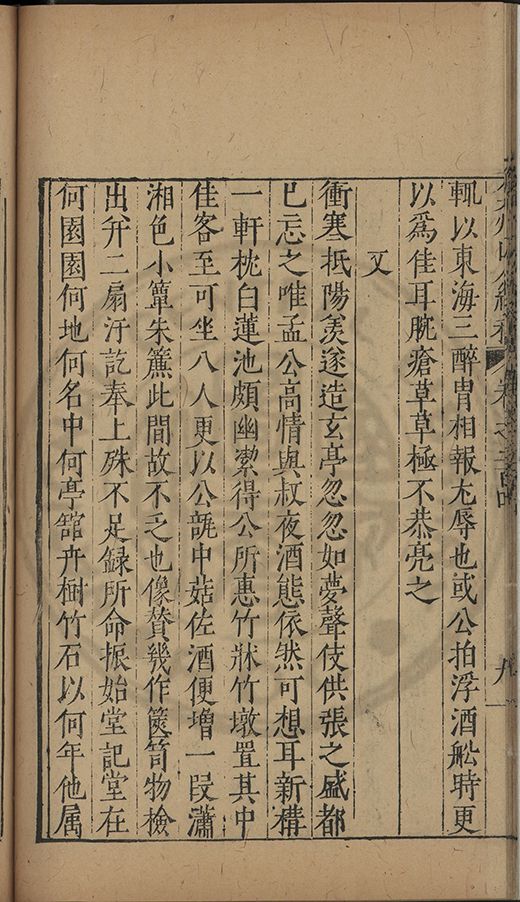 輒以東海三醉胄相報尢辱也或公拍浮酒舩時更
以爲佳耳腕瘡草草極不恭亮之
又
衝寒抵陽羨遂造玄亭忽忽如夢聲伎供張之盛都
已忘之唯孟公高情與叔夜酒態依然可想耳新構
一軒枕白蓮池頗幽潔得公所惠竹牀竹墩置其中
佳客至可坐八人更以公瓻中菇佐酒便增一段瀟
湘色小簟朱簾此間故不乏也像贊幾作篋笥物檢
出幷二扇汙訖奉上殊不足錄所命振始堂記堂在
何園園何地何名中何亭舘卉樹竹石以何年他属